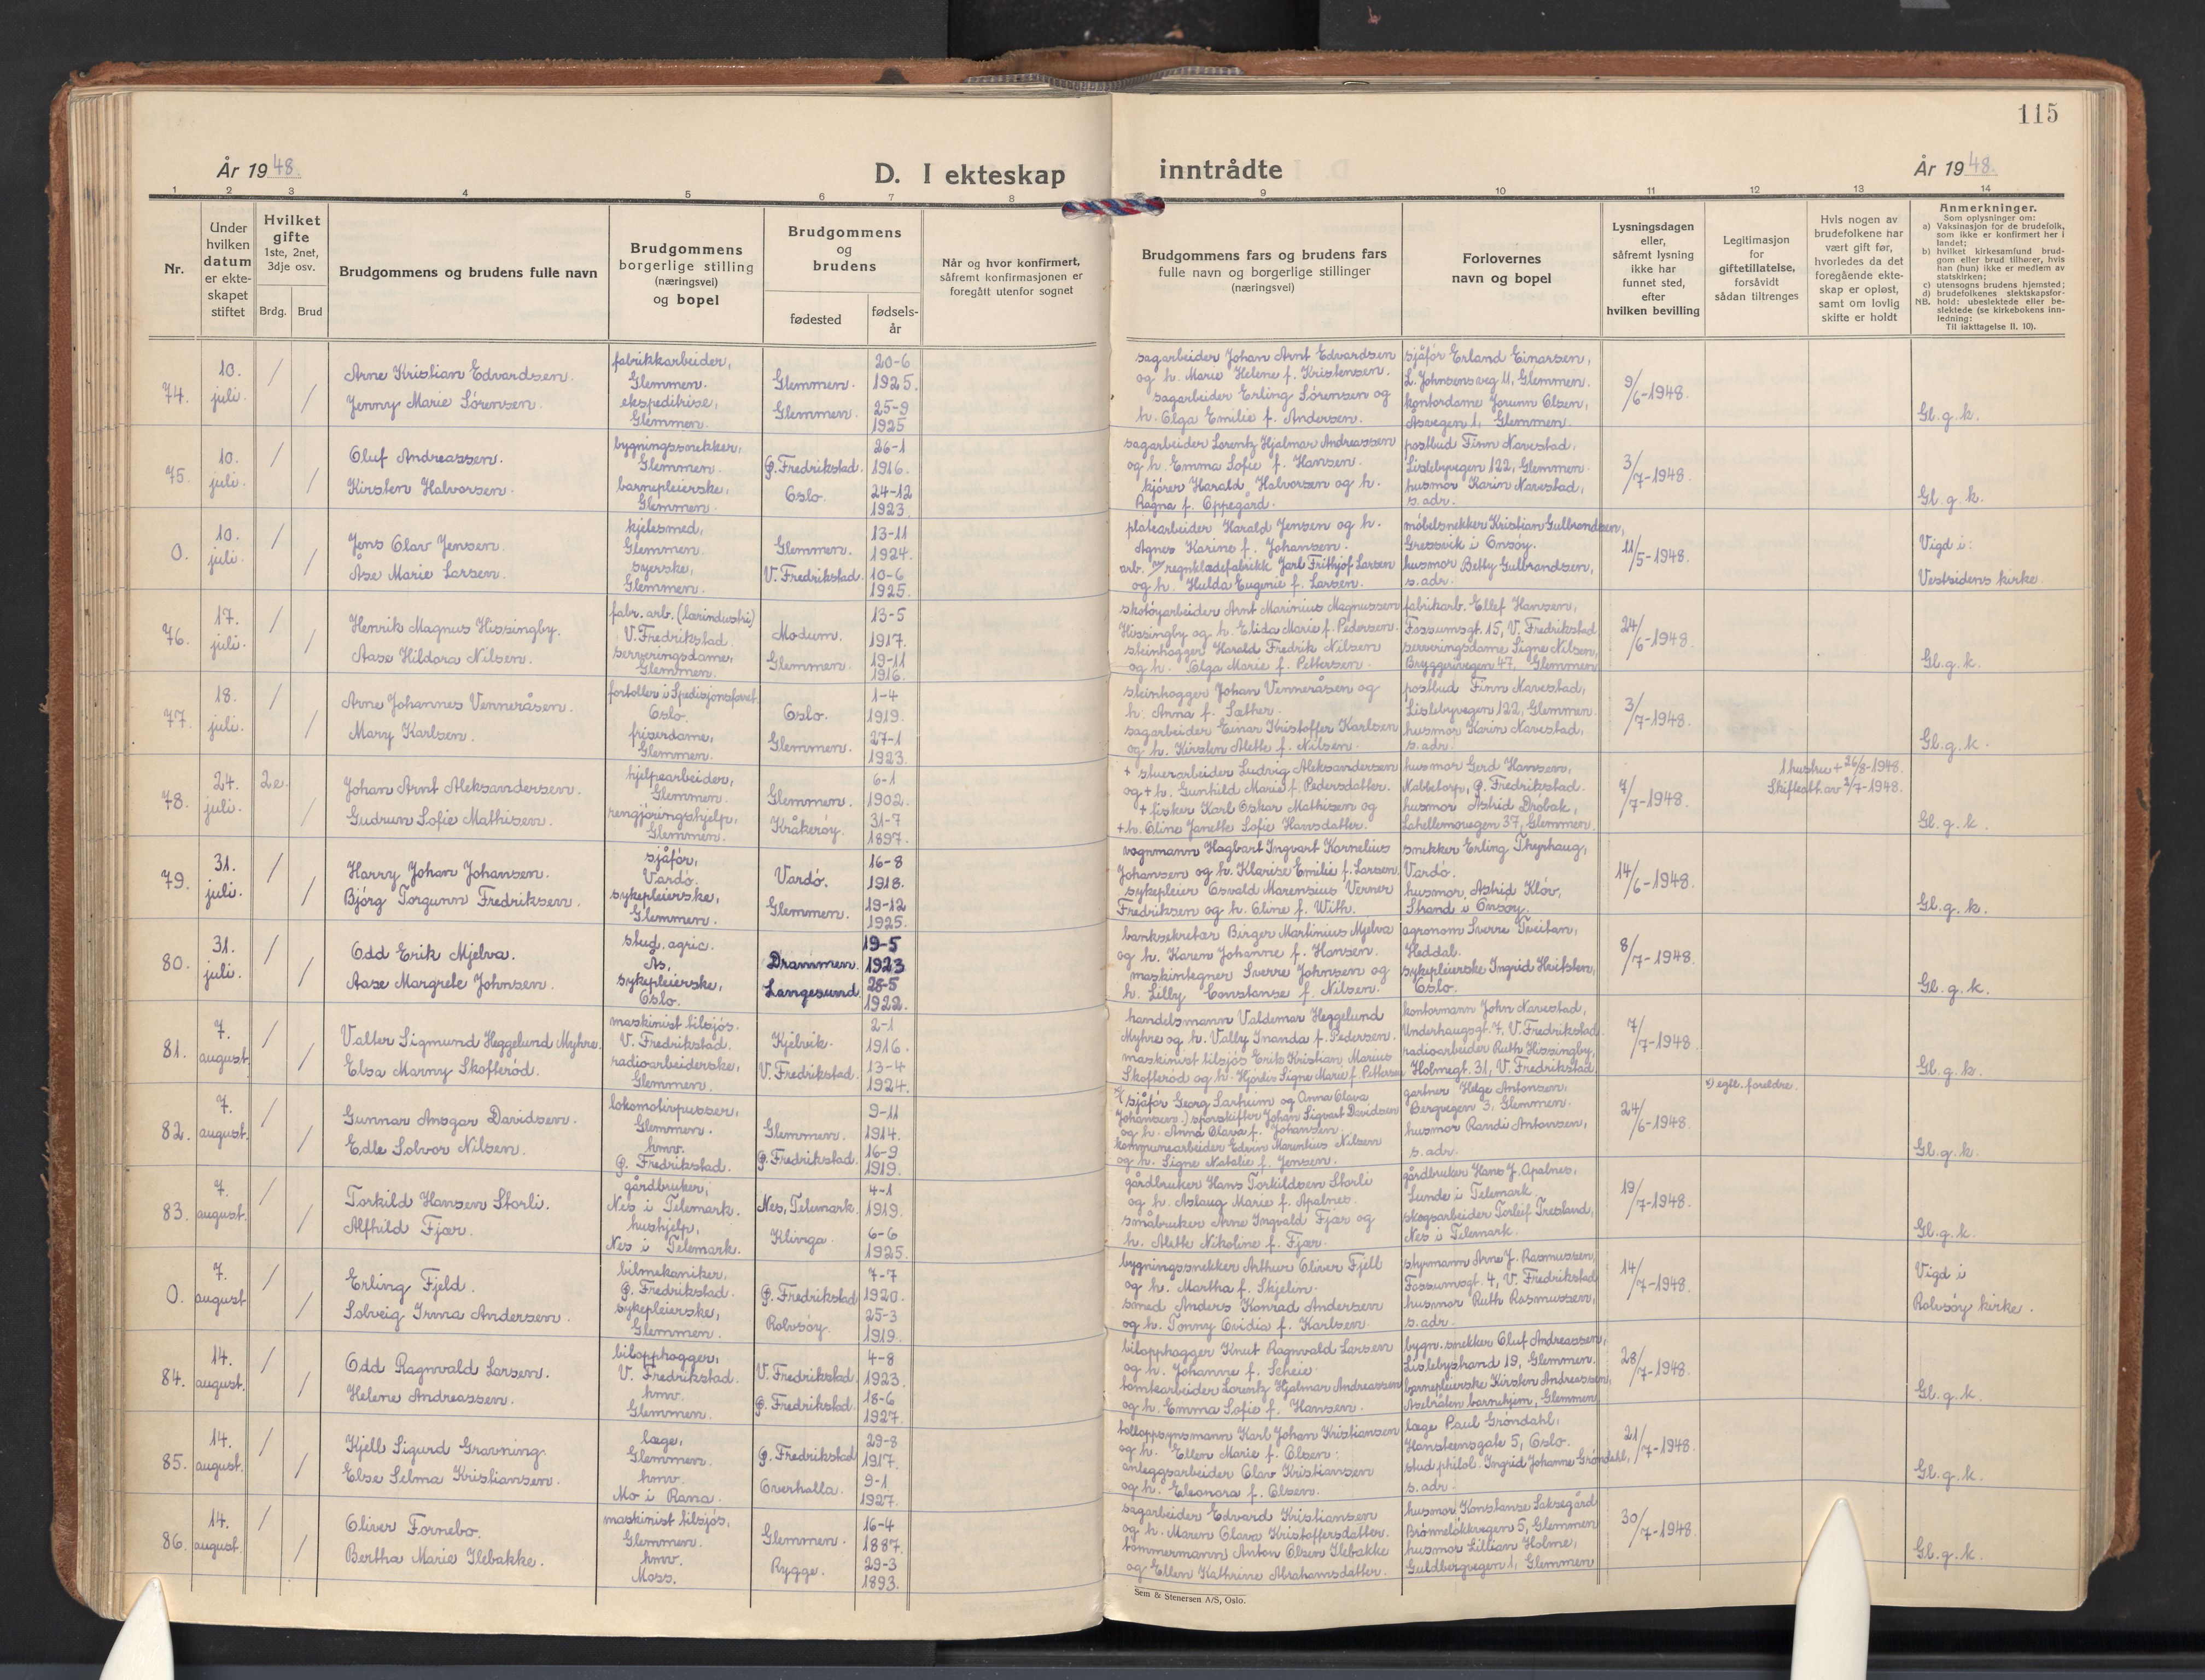 115
År 1948.
D. I ekteskap
inntrådte
År 1948.
1 2 3 4 5 6 7 8 9 10 11 12 13 14
Nr.
Under hvilken datum er ekteskapet stiftet
Hvilket gifte 1ste, 2net, 3dje osv.
Brdg. Brud
Brudgommens og brudens fulle navn
Brudgommens borgerlige stilling (næringsvei) og bopel
Brudgommens og brudens
fødested
fødselsår
Når og hvor konfirmert, såfremt konfirmasjonen er foregått utenfor sognet
Brudgommens fars og brudens fars fulle navn og borgerlige stillinger (næringsvei)
Forlovernes navn og bopel
Lysningsdagen eller, såfremt lysning ikke har funnet sted, efter hvilken bevilling
Legitimasjon for giftetillatelse, forsåvidt sådan tiltrenges
Hvis nogen av brudefolkene har vært gift før, hvorledes da det foregående ekteskap er opløst, samt om lovlig skifte er holdt
Anmerkninger.
Som oplysninger om:
a) Vaksinasjon for de brudefolk, som ikke er konfirmert her i landet;
b) hvilket kirkesamfund brudgom eller brud tilhører, hvis han (hun) ikke er medlem av statskirken;
c) utensogns brudens hjemsted;
d) brudefolkenes slektskapsforhold: ubeslektede eller beslektede (se kirkebokens innledning:
NB. Til iakttagelse II. 10).
74. 10. juli. / /
Arne Kristian Edvardsen.
Jenny Marie Sørensen.
fabrikkarbeider, Glemmen.
ekspeditrise, Glemmen.
Glemmen. 20-6 1925.
Glemmen. 25-9 1925
sagarbeider Johan Arnt Edvardsen
og h. Marie Helene f. Kristensen.
sagarbeider Erling Sørensen og
h. Olga Emilie f. Andersen.
sjåfør Erland Einarsen,
L. Johnsensveg 11, Glemmen.
kontordame Jorunn Olsen,
Åsvegen 1, Glemmen.
9/6-1948.
Gl.g.k.
75. 10. juli. / /
Oluf Andreassen.
Kirsten Halvorsen.
bygningssnekker, Glemmen.
barnepleierske, Glemmen.
Ø. Fredrikstad. 26-1 1916.
Oslo. 24-12 1923.
sagarbeider Lorentz Hjalmar Andreassen
og h. Emma Sofie f. Hansen.
kjører Harald Halvorsen og h.
Ragna f. Oppegård.
postbud Finn Navestad,
Lislebyvegen 122, Glemmen.
husmor Karin Navestad,
s. adr.
3/7-1948.
Gl.g.k.
0. 10. juli. / /
Jens Olav Jensen.
Åse Marie Larsen.
kjelesmed, Glemmen.
syerske, Glemmen.
Glemmen. 13-11 1924.
V. Fredrikstad. 10-6 1925.
platearbeider Harald Jensen og h.
Agnes Karine f. Johansen.
arb. v/ regnklædefabrikk Jarl Frithjof Larsen
og h. Hulda Eugenie f. Larsen.
møbelsnekker Kristian Gulbrandsen,
Gressvik i Onsøy.
husmor Betty Gulbrandsen,
s. adr.
11/5-1948.
Vigd i:
Vestsidens kirke.
76. 17. juli. / /
Henrik Magnus Hissingby.
Aase Hildora Nilsen.
fabr. arb. (lærindustri) V. Fredrikstad.
serveringsdame, Glemmen.
Modum. 13-5 1917.
Glemmen. 19-11 1916.
skotøyarbeider Arnt Marinius Magnussen
Hissingby og h. Elida Marie f. Pedersen.
steinhogger Harald Fredrik Nilsen
og h. Olga Marie f. Pettersen.
fabrikarb. Ellef Hansen,
Fossumsgt. 15, V. Fredrikstad
serveringsdame Signe Nilsen,
Bryggerivegen 47, Glemmen
24/6-1948.
Gl.g.k.
77. 18. juli. / /
Arne Johannes Venneråsen.
Mary Karlsen.
fortoller i Spedisjonsforet. Oslo.
friserdame, Glemmen.
Oslo. 1-4 1919.
Glemmen. 27-1 1923.
steinhogger Johan Venneråsen og
h. Anna f. Sæther.
sagarbeider Einar Kristoffer Karlsen
og h. Kirsten Alethe f. Nilsen.
postbud Finn Navestad,
Lislebyvegen 122, Glemmen.
husmor Karin Navestad,
s. adr.
3/7-1948.
Gl.g.k.
78. 24. juli. 2e. /
Johan Arnt Aleksandersen.
Gudrun Sofie Mathisen.
hjelpearbeider, Glemmen.
rengjøringshjelp, Glemmen.
Glemmen. 6-1 1902.
Kråkerøy. 31-7 1897.
+ stuerarbeider Ludvig Aleksandersen
og + h. Gunhild Marie f. Pedersdatter.
+ fisker Karl Oskar Mathisen og
+ h. Oline Janette Sofie Hansdatter.
husmor Gerd Hansen,
Nabbetorp, Ø. Fredrikstad.
husmor Astrid Drøbak,
Lahellemovegen 37, Glemmen.
7/7-1948.
1 hustru + 26/8-1948.
Skifteatt. av 2/7-1948.
Gl.g.k.
79. 31. juli. / /
Harry Johan Johansen.
Bjørg Torgunn Fredriksen.
sjåfør, Vardø.
sykepleierske, Glemmen.
Vardø. 16-8 1918.
Glemmen. 19-12 1925.
vognmann Hagbart Ingvart Kornelius
Johansen og h. Klarise Emilie f. Larsen.
sykepleier Osvald Marensius Verner
Fredriksen og h. Oline f. With.
snekker Erling Thyrhaug,
Vardø.
husmor Astrid Kløv,
Strand i Onsøy.
14/6-1948.
Gl.g.k.
80. 31. juli. / /
Odd Erik Mjelva.
Aase Margrete Johnsen.
stud. agric. Ås.
sykepleierske, Oslo.
Drammen. 19-5 1923
Langesund. 28-5 1922.
banksekretær Birger Martinius Mjelva
og h. Karen Johanne f. Hansen.
maskintegner Sverre Johnsen og
h. Lilly Constanse f. Nilsen.
agronom Sverre Tveitan,
Heddal.
sykepleierske Ingrid Hvitsten,
Oslo.
8/7-1948.
Gl.g.k.
81. 7. august. / /
Valter Sigmund Heggelund Myhre.
Elsa Marny Skofterød.
maskinist tilsjøs. V. Fredrikstad.
radioarbeiderske, Glemmen.
Kjelvik. 2-1 1916.
V. Fredrikstad. 13-4 1924.
handelsmann Valdemar Heggelund
Myhre og h. Vally Inanda f. Pedersen.
maskinist tilsjøs Erik Kristian Marius
Skofterød og h. Hjørdis Signe Marie f. Pettersen
kontormann John Navestad,
Underhaugsgt. 7, V. Fredrikstad.
radioarbeider Ruth Hissingby,
Holmegt. 31, V. Fredrikstad,
7/7-1948.
Gl.g.k.
82. 7. august. / /
Gunnar Ansgar Davidsen.
Edle Solvor Nilsen.
lokomotivpusser, Glemmen.
hmv. Ø. Fredrikstad.
Glemmen. 9-11 1914.
Ø. Fredrikstad. 16-9 1919.
sjåfør Georg Sarheim og Anna Olava
Johansen.) sporskifter Johan Sigvart Davidsen
og h. Anna Olava f. Johansen.
kommunearbeider Edvin Marentius Nilsen
og h. Signe Natalie f. Jensen.
gartner Helge Antonsen,
Bergvegen 3, Glemmen.
husmor Randi Antonsen,
s. adr.
24/6-1948.
x) egtl. foreldre.
Gl.g.k.
83. 7. august. / /
Torkild Hansen Storli.
Alfhild Fjær.
gårdbruker, Nes i Telemark.
hushjelp, Nes i Telemark.
Nes, Telemark. 4-1 1919.
Klinga. 6-6 1925.
gårdbruker Hans Torkildsen Storli
og h. Aslaug Marie f. Apalnes.
småbruker Arne Ingvald Fjær og
h. Aleth Nikoline f. Fjær.
gårdbruker Hans J. Apalnes,
Lunde i Telemark.
skogsarbeider Torleif Tresland,
Nes i Telemark.
19/7-1948.
Gl.g.k.
0. 7. august / /
Erling Fjeld.
Solveig Irma Andersen.
bilmekaniker, Ø. Fredrikstad.
sykepleierske, Glemmen.
Ø. Fredrikstad 7-7 1920.
Rolvsøy. 25-3 1919.
bygningssnekker Arthur Oliver Fjell
og h. Martha f. Skjelin.
smed Anders Konrad Andersen
og h. Tonny Ovidia f. Karlsen.
styrmann Arne J. Rasmussen,
Fossumsgt. 4, V. Fredrikstad
husmor Ruth Rasmussen,
s. adr.
14/7-1948.
Vigd i
Rolvsøy kirke.
84. 14. august. / /
Odd Ragnvald Larsen.
Helene Andreassen.
bilopphogger, V. Fredrikstad.
hmv. Glemmen.
V. Fredrikstad. 4-8 1923.
Ø. Fredrikstad. 18-6 1927.
bilopphogger Knut Ragnvald Larsen
og h. Johanne f. Scheie.
tomtearbeider Lorentz Hjalmar Andreassen
og h. Emma Sofie f. Hansen.
bygn.snekker Oluf Andreassen,
Lislebystrand 19, Glemmen.
barnepleierske Kirsten Andreassen,
Asebråten barnehjem, Glemmen
28/7-1948.
Gl.g.k.
85. 14. august. / /
Kjell Sigurd Gravning.
Else Selma Kristiansen.
læge, Glemmen.
hmv. Mo i Rana.
Ø. Fredrikstad 29-8 1917.
Overhalla. 9-1 1927.
tolloppsynsmann Karl Johan Kristiansen
og h. Ellen Marie f. Olsen.
anleggsarbeider Olav Kristiansen
og h. Eleonora f. Olsen.
læge Paul Grøndahl,
Hansteensgate 5, Oslo.
stud philol. Ingrid Johanne Grøndahl,
s. adr.
21/7-1948.
Gl.g.k.
86. 14. august. / /
Oliver Fornebo.
Bertha Marie Ilebakke.
maskinist tilsjøs, Glemmen.
hmv. Moss.
Glemmen. 16-4 1887.
Rygge. 29-3 1893.
sagarbeider Edvard Kristiansen
og h. Maren Olava Kristoffersdatter.
tømmermann Anton Olsen Ilebakke
og Ellen Kathrine Abrahamsdatter.
husmor Konstanse Saksegård
Brønneløkkvegen 5, Glemmen
husmor Lillian Holme,
Guldbergvegen 1, Glemmen
30/7-1948.
Gl.g.k.
Sem & Stenersen A/S, Oslo.